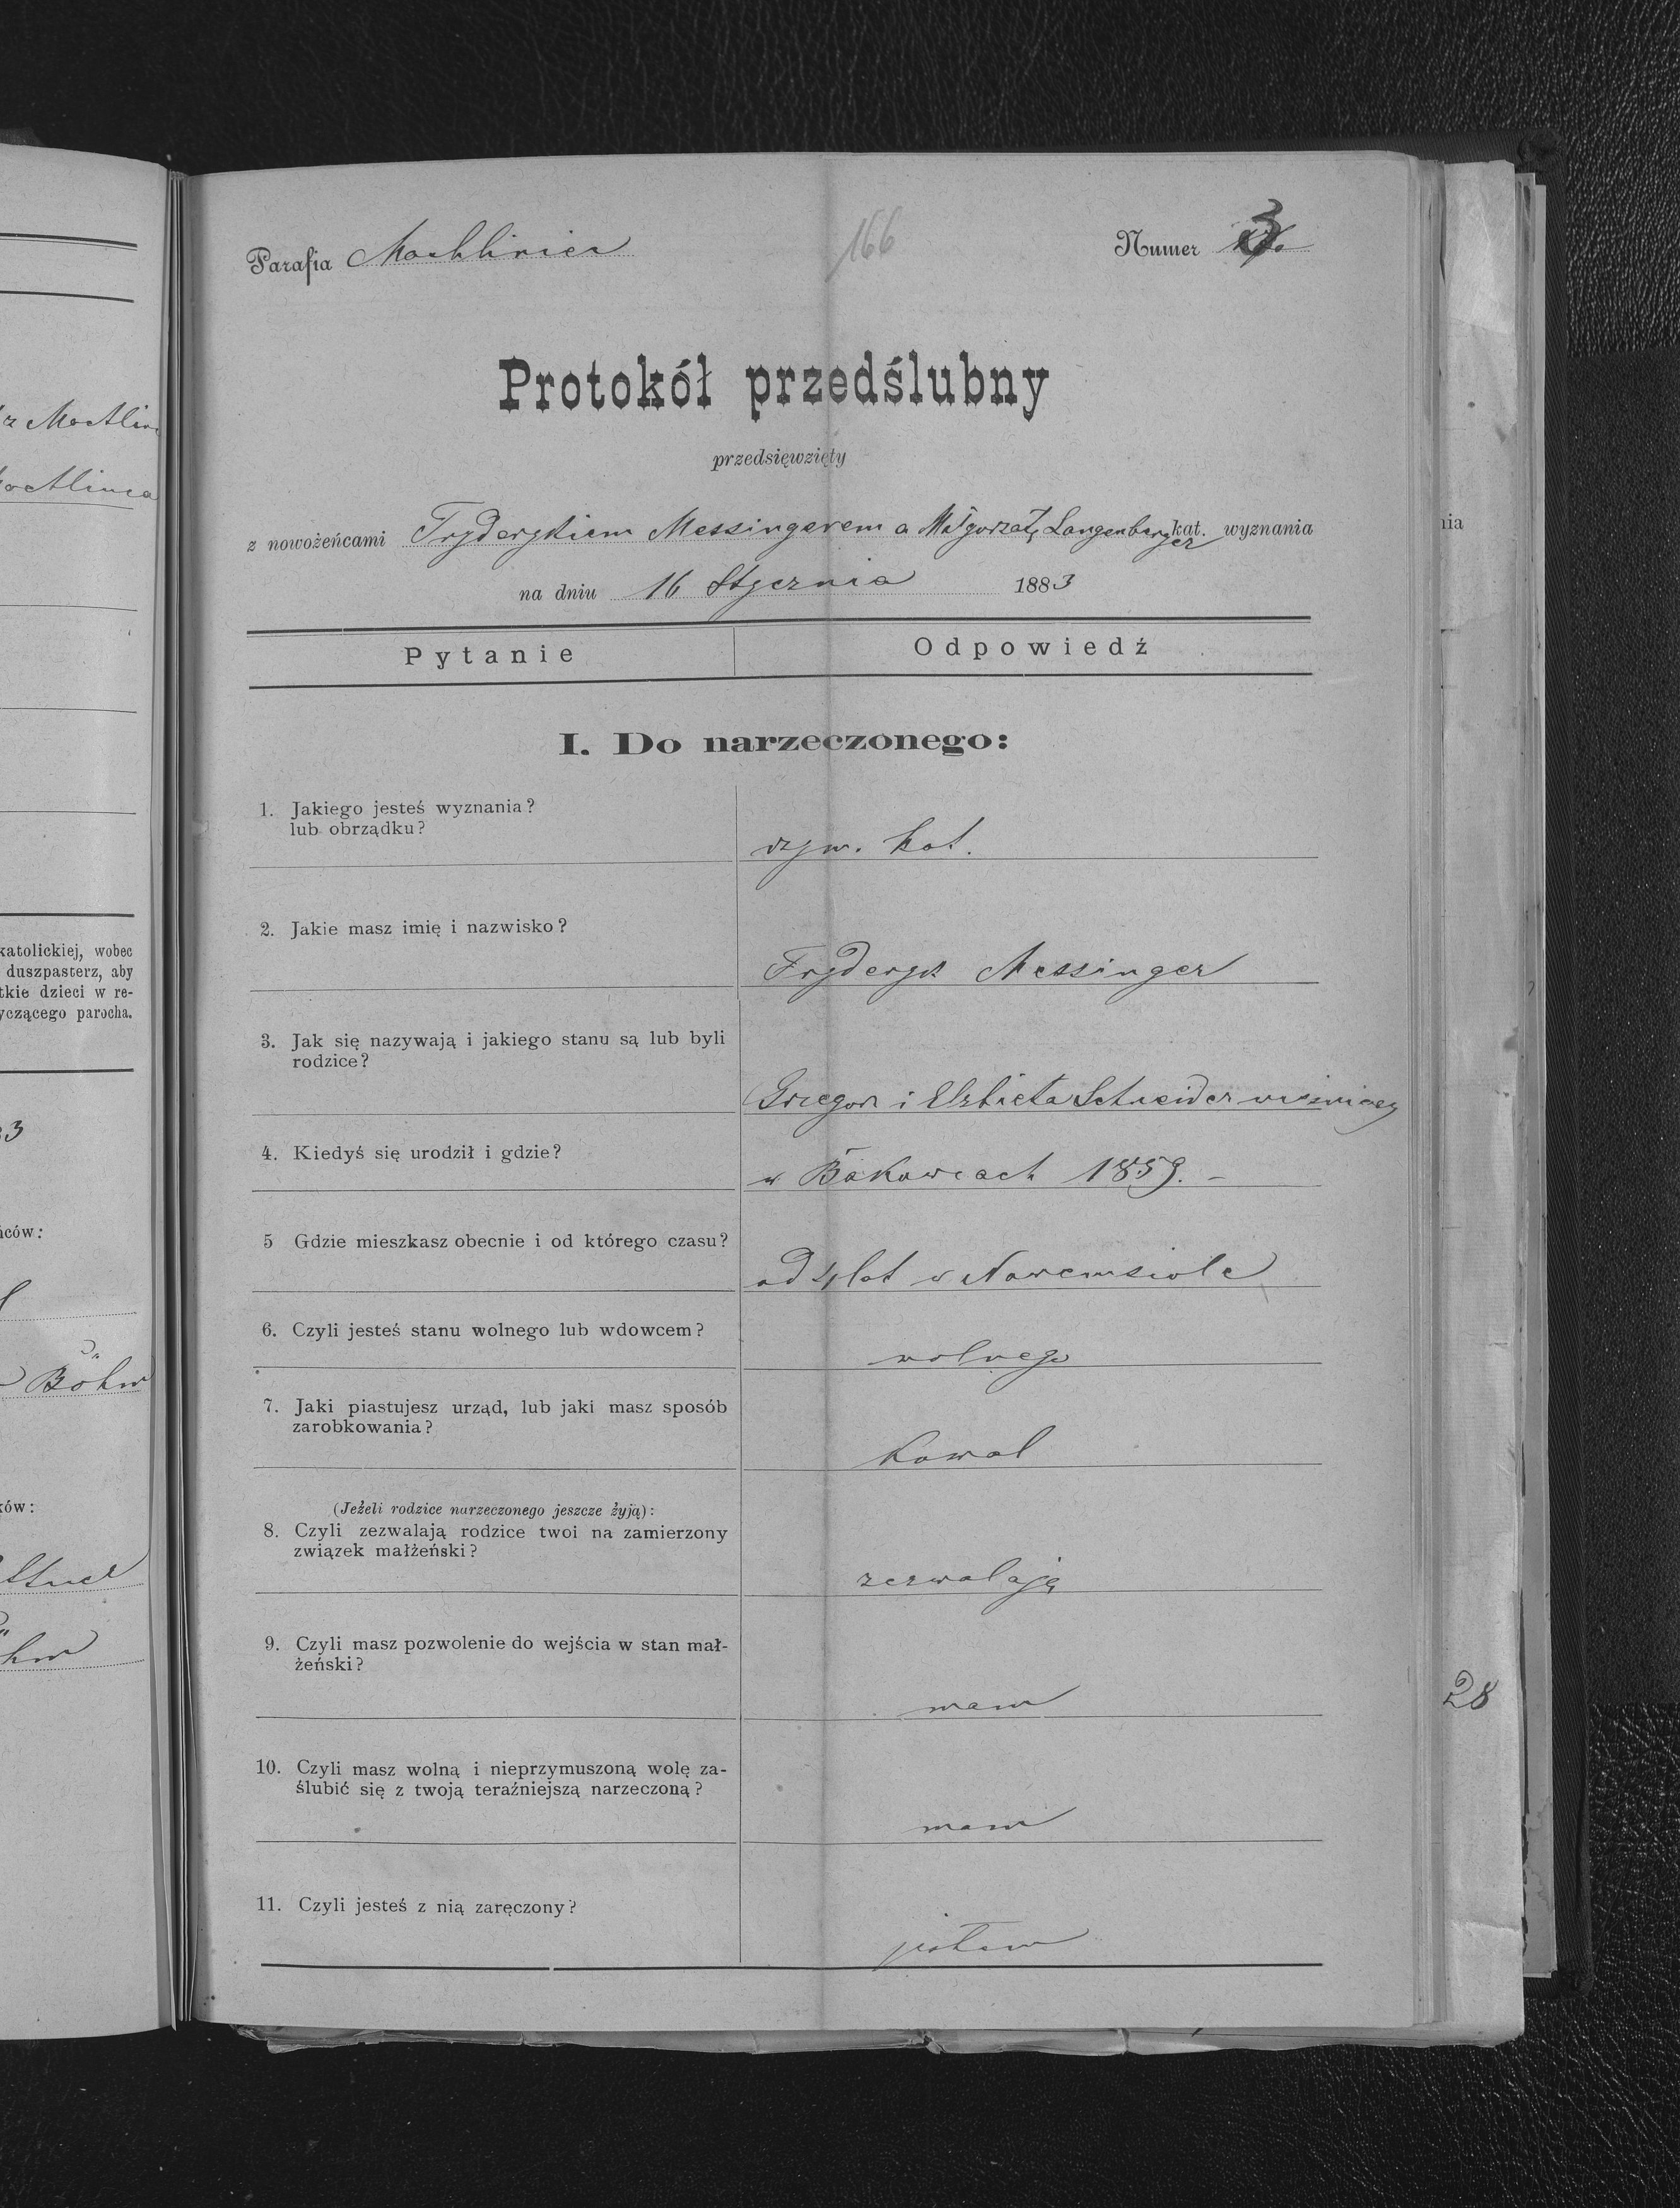 Parafia Machliniec
166
Numer 3
Protokół przedślubny
przedsięwzięty
z nowożeńcami Fryderykiem Messingerem a Małgorzatą Langenberger kat. wyznania
na dniu 16 Stycznia 1883
Pytanie Odpowiedź
I. Do narzeczonego:
1. Jakiego jesteś wyznania?
lub obrządku?
rzym. kat.
2. Jakie masz imię i nazwisko?
Fryderyk Messinger
3. Jak się nazywają i jakiego stanu są lub byli
rodzice?
Grzegorz i Elżbieta Schneider
4. Kiedyś się urodził i gdzie?
w Bakowcach 1859. –
5 Gdzie mieszkasz obecnie i od którego czasu?
od 4 lat w Nowemsiole
6. Czyli jesteś stanu wolnego lub wdowcem?
wolnego
7. Jaki piastujesz urząd, lub jaki masz sposób
zarobkowania?
kowal
(Jeżeli rodzice narzeczonego jeszcze żyją):
8. Czyli zezwalają rodzice twoi na zamierzony
związek małżeński?
zezwalają
9. Czyli masz pozwolenie do wejścia w stan mał-
żeński?
mam
10. Czyli masz wolną i nieprzymuszoną wolę za-
ślubić się z twoją teraźniejszą narzeczoną?
mam
11. Czyli jesteś z nią zaręczony?
jestem
katolickiej, wobec
duszpasterz, aby
tkie dzieci w re-
yczącego parocha.
Böhm
nia
28